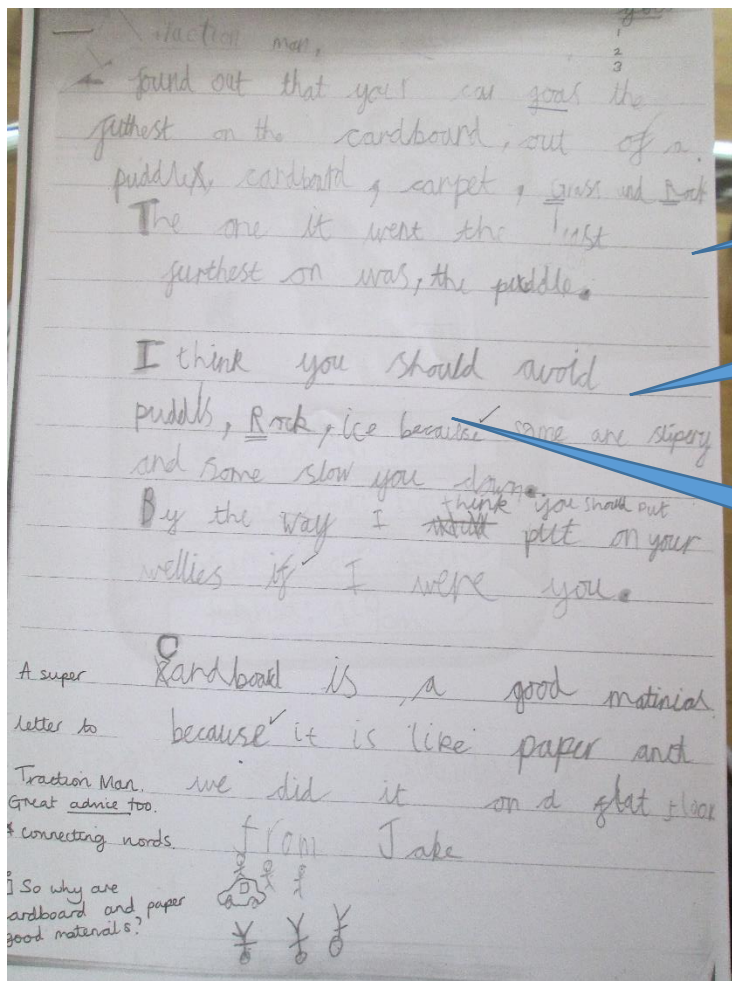 you
1
2
3
Traction man,
found out that your car goas the
furthest on the cardboard, out of a
puddles, cardboard, carpet, Grass and Rock
The one it went the least
furthest on was, the puddle.
I think you should avoid
puddls, Rock, ice because some are slipery
and some slow you down.
think you should put
By the way I put on your
wellies if I were you.
Cardboard is a good matinial
because it is like paper and
we did it on a flat floor
from Jake
A super
letter to
Traction Man.
Great advice too.
connecting words.
So why are
cardboard and paper
good materials?